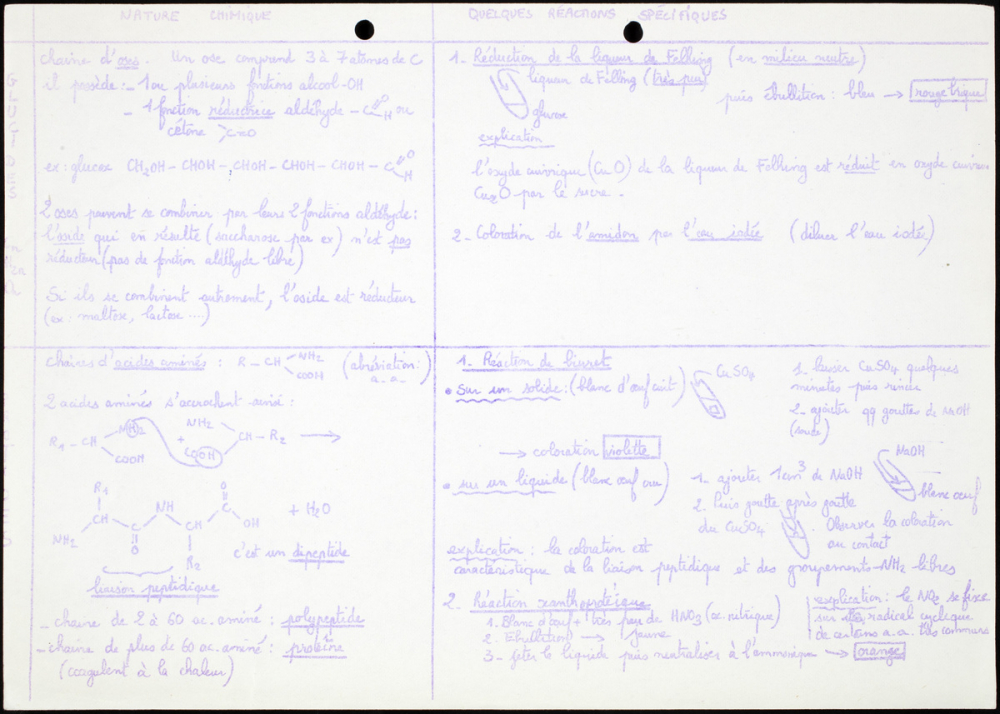 NATURE CHIMIQUE
QUELQUES RÉACTIONS SPÉCIFIQUES
GLUCIDES
chaine d'oses. Un ose comprend 3 à 7 atomes de C
il possède : - 1 ou plusieurs fonctions alcool -OH
- 1 fonction réductrice aldéhyde - C=O H ou
cétone >C=O
ex : glucose CH2OH - CHOH - CHOH - CHOH - CHOH - C=O H
2 oses peuvent se combiner par leurs 2 fonctions aldéhyde :
l'oside qui en résulte (saccharose par ex) n'est pas
réducteur (pas de fonction aldéhyde libre)
Si ils se combinent autrement, l'oside est réducteur
(ex : maltose, lactose ....)
1 - Réduction de la liqueur de Felhing (en milieu neutre)
liqueur de Felhing (très peu)
puis ébullition : bleu → rouge brique
glucose
explication
l'oxyde cuivrique (CuO) de la liqueur de Felhing est réduit en oxyde cuivreux
Cu2O par le sucre .
2 - Coloration de l'amidon par l'eau iodée (diluer l'eau iodée)
chaines d'acides aminés : R - CH NH2 COOH (abréviation : a - a -)
2 acides aminés s'accrochent ainsi :
R1 - CH NH2 COOH + NH2 COOH CH - R2 →
R1 NH2 CH C O NH CH R2 C O OH + H2O
c'est un dipeptide
liaison peptidique
- chaine de 2 à 60 ac. aminé : polypeptide
- chaine de plus de 60 ac. aminé : protéine
(coagulent à la chaleur)
1 - Réaction de biuret
• Sur un solide : (blanc d'œuf cuit)
CuSO4
1 - laisser CuSO4 quelques
minutes puis rincer
2 - ajouter qq gouttes de NaOH
(soude)
→ coloration violette
• sur un liquide (blanc œuf cru)
1 - ajouter 1cm3 de NaOH
2. Puis goutte après goutte
du CuSO4
NaOH
blanc œuf
Observer la coloration
au contact
explication : la coloration est
caractéristique de la liaison peptidique et des groupements -NH2 libres
2 - Réaction xanthoprotéique
1. Blanc d'œuf + très peu de HNO3 (ac. nitrique)
2. Ebullition → jaune
3 - Jeter le liquide puis neutraliser à l'ammoniaque → orange
explication : le NO2 se fixe
sur radical cyclique
de certains a.a. très communs